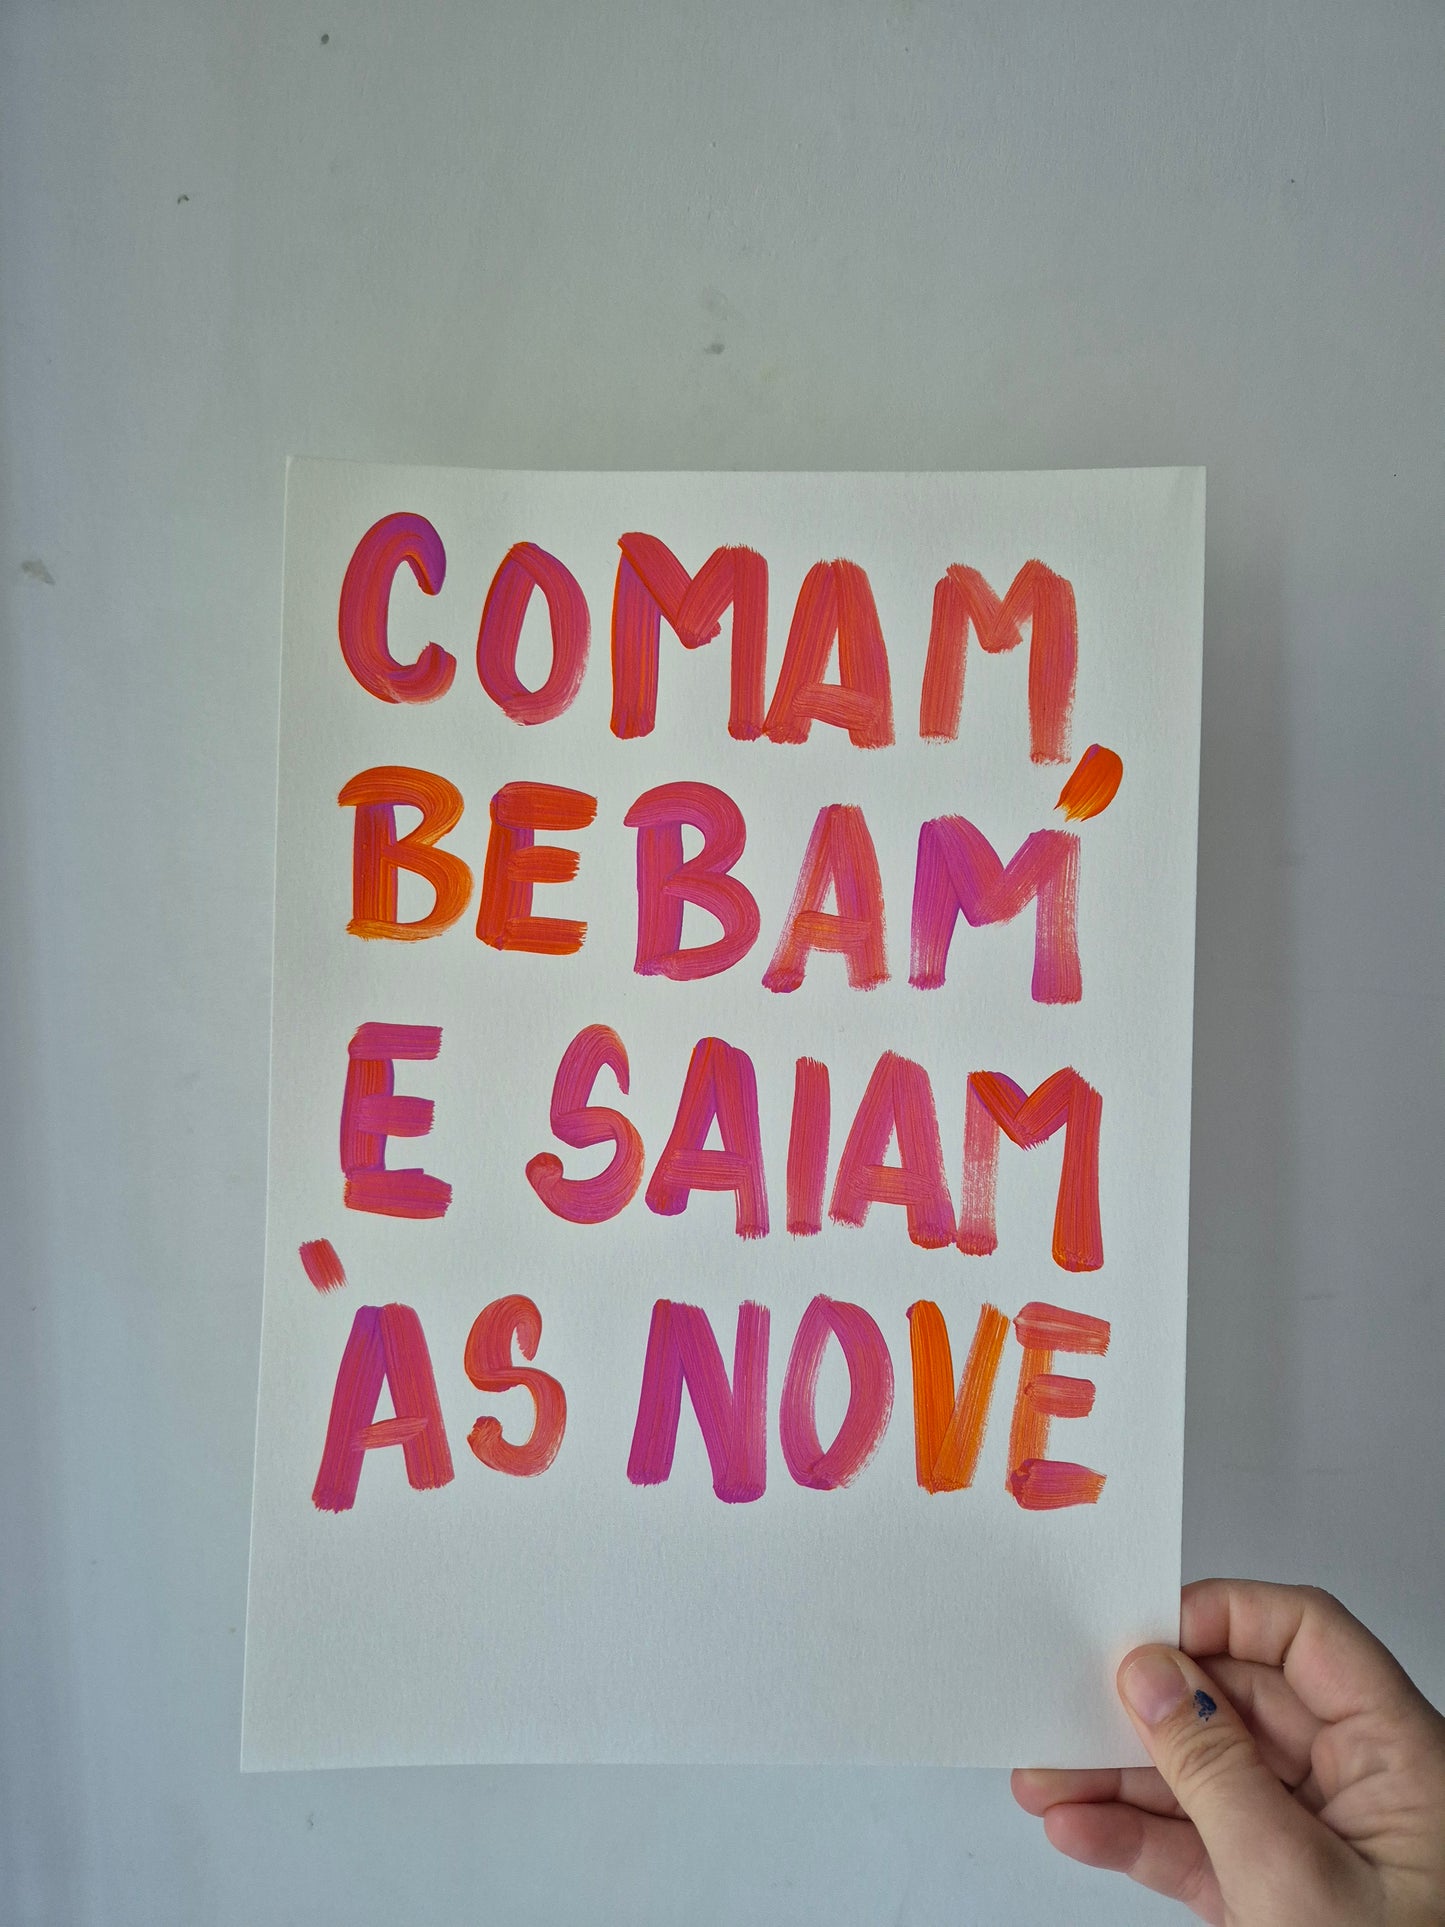 COMAM,
BEBAM
E SAIAM
ÀS NOVE